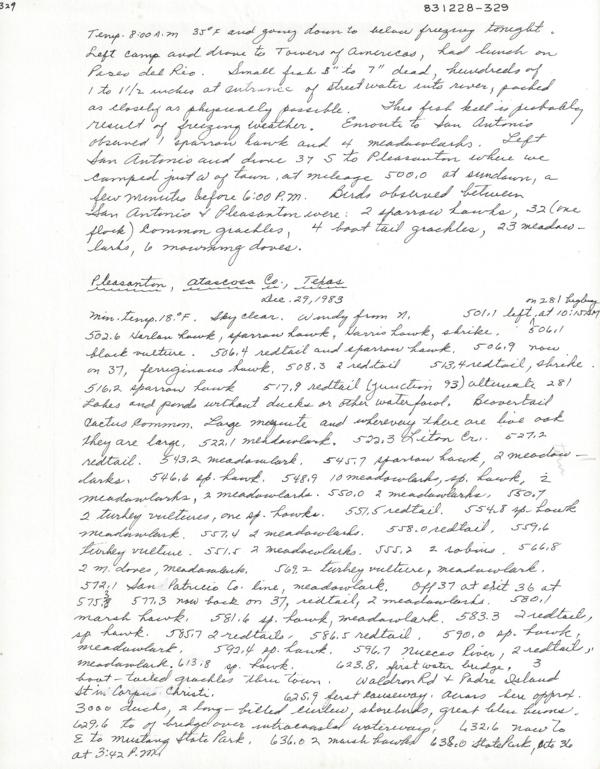 329
831228-329
Temp. 8:00 A.M 35°F and going down to below freezing tonight.
Left camp and drove to Towers of Americas, had lunch on
Paseo del Rio. Small fish 3" to 7" dead, hundreds of
1 to 1 1/2 inches at entrance of street water into river, packed
as closely as physically possible. This fish kill is probably
result of freezing weather. Enroute to San Antonio
observed 1 sparrow hawk and 4 meadowlarks. Left
San Antonio and drove 37 S to Pleasanton where we
camped just W of town, at mileage 500.0 at sundown, a
few minutes before 6:00 P.M. Birds observed between
San Antonio & Pleasanton were: 2 sparrow hawks, 32 (one
flock) common grackles, 4 boat tail grackles, 23 meadow-
larks, 6 mourning doves.
Pleasanton, Atascosa Co., Texas
Dec. 29, 1983
Min. temp. 18°F. Sky clear. Windy from N. 501.1 left, on 281 highway at 10:15 AM
502.6 Harlan hawk, sparrow hawk, Harris hawk, shrike. 506.1
black vulture. 506.4 redtail and sparrow hawk. 506.9 now
on 37, ferruginous hawk, 508.3 2 redtail 513.4 redtail, shrike.
516.2 sparrow hawk 517.9 redtail (junction 93) alternate 281
Lakes and ponds without ducks or other waterfowl. Beavertail
cactus common. Large mesquite and wherever there are live oak
they are large. 522.1 meadowlark. 522.3 Cr. 527.2
redtail. 543.2 meadowlark. 545.7 sparrow hawk, 2 meadow-
larks. 546.6 sp. hawk. 548.9 10 meadowlarks, sp. hawk, 2
meadowlarks, 2 meadowlarks. 550.0 2 meadowlarks. 550.7
2 turkey vultures, one sp. hawk. 551.5 redtail. 554.8 sp. hawk
meadowlark. 557.4 2 meadowlarks. 558.0 redtail, 559.6
turkey vulture. 551.5 2 meadowlarks. 555.2 2 robins. 566.8
2 m. doves, meadowlark. 569.2 turkey vulture, meadowlark.
572.1 San Patricio Co. line, meadowlark. Off 37 at exit 36 at
575.3 577.3 now back on 37, redtail, 2 meadowlarks. 580.1
marsh hawk. 581.6 sp. hawk, meadowlark. 583.3 2 redtails,
sp. hawk. 585.7 2 redtails, 586.5 redtail. 590.0 sp. hawk,
meadowlark. 592.4 sp. hawk. 596.7 Nueces River, 2 redtail,
meadowlark. 613.8 sp. hawk. 623.8, first water bridge, 3
boat-tailed grackles thru town. Waldron Rd & Padre Island
St in Corpus Christi. 625.9 first causeway. Across here approx.
3000 ducks, 2 long-billed curlew, shorebirds, great blue herons.
629.6 to of bridge over intracoastal waterway, 632.6 now to
E to Mustang State Park. 636.0 2 marsh hawks 638.0 State Park, site 36
at 3:42 P.M.